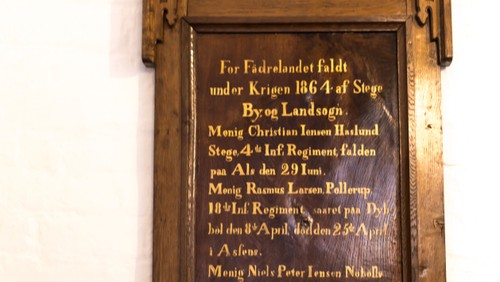 For Fädrelandet faldt
under Krigen 1864 af Stege
By og Landsogn.
Menig Christian Jensen Haslund
Stege, 4de Inf. Regiment, falden
paa Als den 29 Juni.
Menig Rasmus Larsen, Pollerup,
18de Inf. Regiment, saaret paa Dyb
böl den 8de April, död den 25de April
i Assens.
Menig Niels Peter Jensen Nobölle